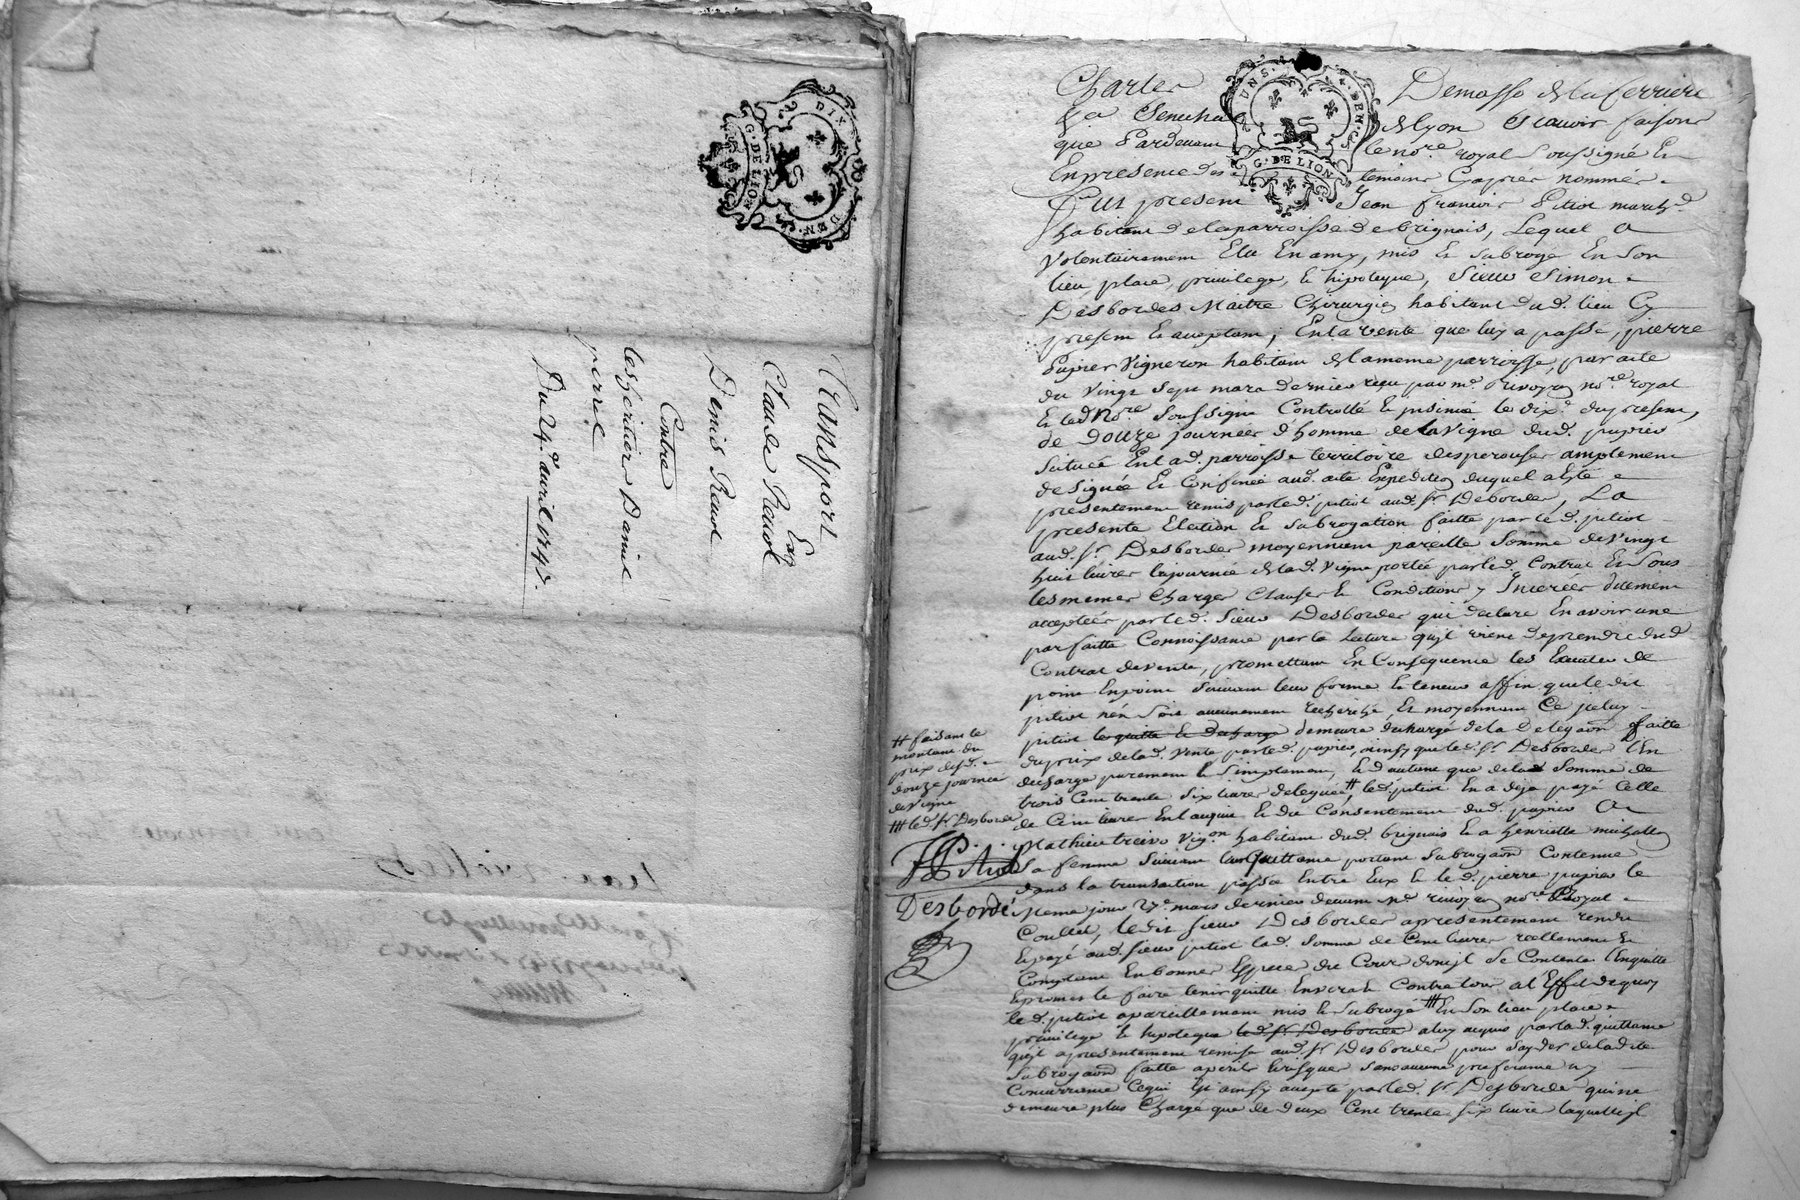 DIX DEN.
G. DE LION
Transport
Claude Revol
Denis Revol
Contre
les heritiers Daniel
perrel
Du 29e avril 1745.
UNS. DEN.CS
G. DE LION
Charles Demasso de la ferriere
Senechal de lyon Scavoir faisons
que Pardevant le nore. royal Soussigné Et
En presence des temoins Cyaprés nommés
fut present Jean francois Pitiot marchd
habitant de la parroisse de brignais, Lequel a
Volontairement Elu En amy, mis Et Subrogé En Son
lieu, place, privilege, Et hipoteque, Sieur Simon
Desbordes Maitre Chirurgien habitant dud. lieu Cy
present Et aceptant, En la vente que luy a passé, pierre
pupier Vigneron habitant de la meme parroisse, par acte
du vingt Sept mars dernier reçu par me. Rivoyre nore. royal
Et led Nore Soussigné Controllé Et insinué le dixe. du present,
de douze journées d'homme de la vigne dud. pupier
Scituée En lad. parroisse territoire des perouses amplement
designée Et Confinée aud. acte Expedition duquel a Eté
presentement remis par led. pitiot aud. Sr Desbordes, La
presente Election Et Subrogation faitte par led. pitiot
aud. Sr. Desbordes moyennant pareille Somme de vingt
huit livres la journée de lad. Vigne portée par led. Contrat Et Sous
les memes Charges Clauses Et Conditions y Inserées dument
acceptées par led. Sieur Desbordes qui declare En avoir une
parfaitte Connoissance par la lecture qu'il vient de prendre dud
Contrat de vente, promettant En Consequence les Executer de
point En point Suivant leur forme Et teneur affin que ledit
pitiot n'en Soit aucunement recherché, Et moyennant Ce
pitiot le quitte Et decharge demeure dechargé de la Delegaon faitte
du prix de lad. vente par led. pupier, ainsy que led. Sr Desbordes l'En
decharge purement Et Simplement, Et d'autant que de lad Somme de
trois Cent trente Six livres deleguée # led. pitiot En a deja payé Celle
de Cent livres En l'acquit Et du Consentement dud. pupier a
Mathieu Vigon habitant dud. brignais Et a henriette
Sa femme Suivant la Quittance portant Subrogaon Contenue
dans la transaction passée Entre Eux Et led. pierre pupier le
Meme jour 27e mars dernier devant Me rivoyre nore Royal
ledit Sieur Desbordes a presentement rendu
Et payé aud. Sieur pitiot lad. Somme de Cent livres reellement Et
Comptant En bonnes Especes du Cours dont il Se Contente l'En quitte
Et promet le faire tenir quitte Envers Et Contre tous a l'Effet de quoy
led. pitiot a pareillement mis Et Subrogé ### En Son lieu place
privilege Et hipoteque led. Sr Desbordes a luy acquis par lad. quittance
qu'il a presentement remise aud. Sr Desbordes pour S'ayder de lad.
Subrogaon faitte a perils Et risques Sans aucune preferance ny
Concurrence Ce qui Est ainsy accepté par led. Sr. Desbordes qui ne
demeure plus Chargé que de deux Cent trente Six livres laquelle il
# faisant le
montant du
prix desd.
douze journées
de vigne
### led. Sr Desbordes
JPitiot
Desbordes